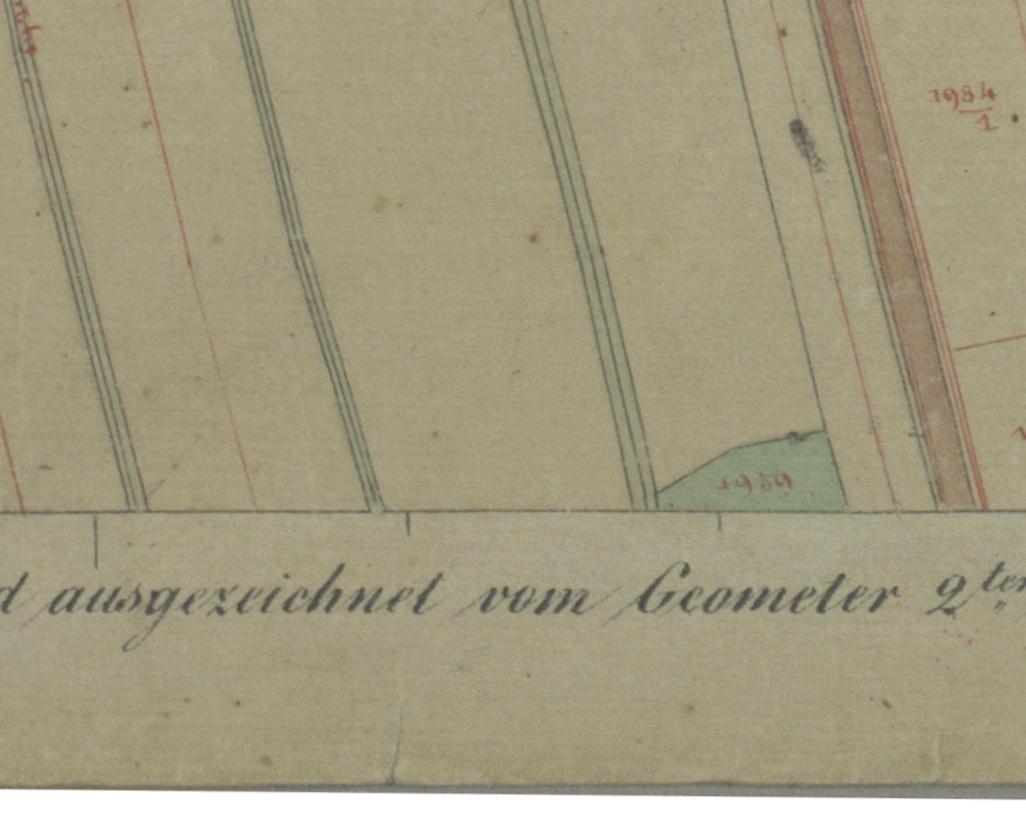 1984
1
1959
d ausgezeichnet vom Geometer 2ten